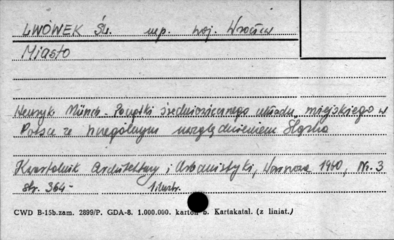 LWÓWEK Śl. mp. woj. Wrocław
Miasto
Henryk Münch - Początki średniowiecznego układu miejskiego w
Polsce ze szczególnym uwzględnieniem Śląska
Kwartalnik Architektury i Urbanistyki, Warszawa 1960, Nr. 3
str. 364-      ilustr.
CWD B-15b.zam. 2899/P. GDA-8. 1.000.000. karton b. Kartakatal. (z liniat.)